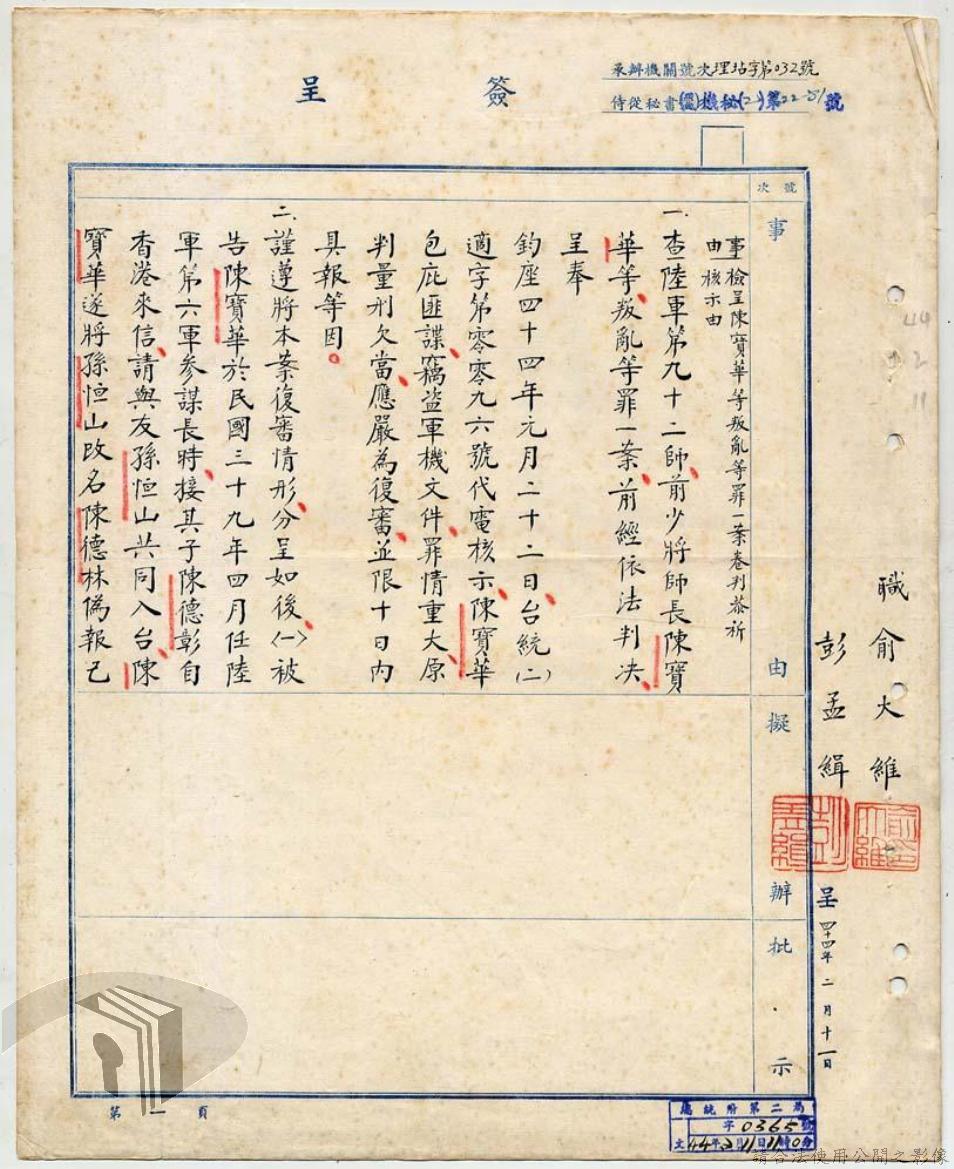 簽呈
承辦機關號次理坫字第032號
侍從秘書機秘(2)第22-51號
號次
事由
擬辦
批示
事由 檢呈陳寶華等叛亂等罪一案卷判恭祈
核示由
一、查陸軍第九十二師、前少將師長陳寶
華等、叛亂等罪一案、前經依法判決、
呈奉
鈞座四十四年元月二十二日、台統(二)
適字第零零九六號代電核示、陳寶華
包庇匪諜、竊盜軍機文件、罪情重大、原
判量刑欠當、應嚴為復審、並限十日內
具報等因。
二、謹遵將本案復審情形、分呈如後、(一)被
告陳寶華於民國三十九年四月任陸
軍第六軍參謀長時、接其子陳德彰自
香港來信、請與友孫恒山共同入台、陳
寶華遂將孫恒山改名陳德林偽報已
職 俞大維
彭孟緝
俞大維
彭孟緝
呈 四十四年二月十一日
44
2
11
第一頁
總統府第二局
字0365號
文44年2月11日11時0分
請合法使用公開之影像